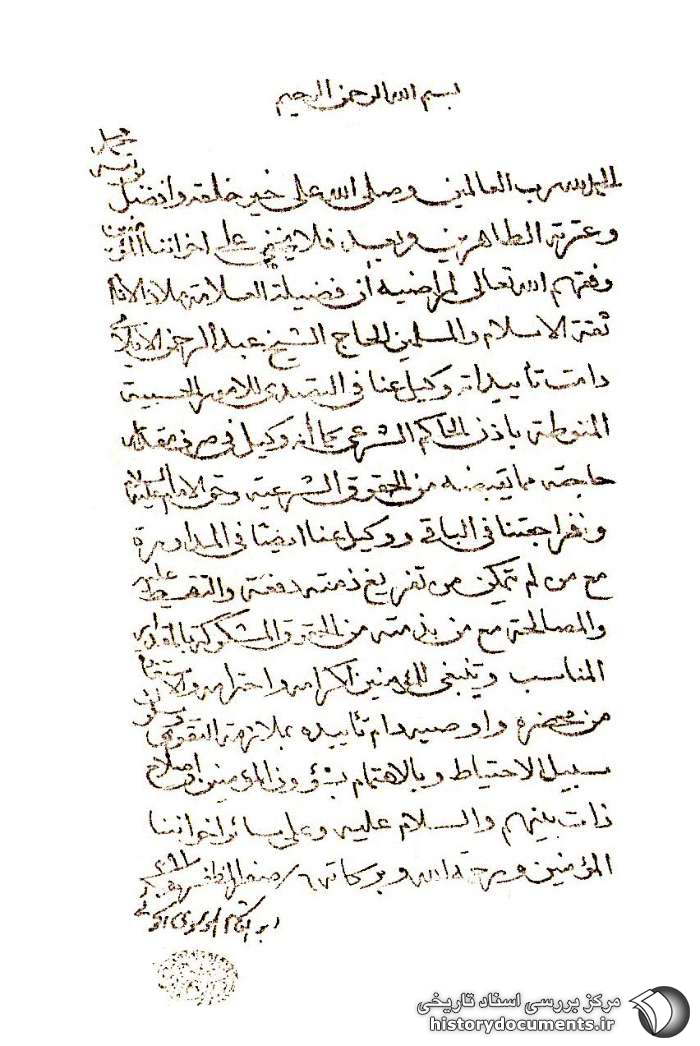 بسم الله الرحمن الرحيم
الحمد لله رب العالمين وصلى الله على خير خلقه وافضل بريته محمد
وعترته الطاهرين وبعد فلا يخفى على اخواننا المؤمنين
وفقهم الله تعالى لمراضيه أن فضيلة العلامة ملاذ الانام
ثقة الاسلام والمسلمين الحاج الشيخ عبد الرحمن
دامت تأييداته وكيل عنا في التصدى للامور الحسبية
المنوطة باذن الحاكم الشرعي كما أنه وكيل في صرف مقدار
حاجته مما يقبضه من الحقوق الشرعية وحق الامام عليه السلام
وفى اجتنا في الباقي ووكيل عنا ايضا في المداورة
مع من لم يتمكن من تفريغ ذمته دفعة والتقسيط عليه
والمصالحة مع من بذمته من الحقوق المشكوكة بالمقدار
المناسب وينبغي للمؤمنين اكرامه واحترامه والاستفادة
من محضره واوصيه دام تأييده بملازمة التقوى وسلوك
سبيل الاحتياط وبالاهتمام بشؤون المؤمنين واصلاح
ذات بينهم والسلام عليه وعلى سائر اخواننا
المؤمنين ورحمة الله وبركاته صفر المظفر
ابو القاسم الموسوي الخوئي
مرکز بررسی اسناد تاریخی
historydocuments.ir